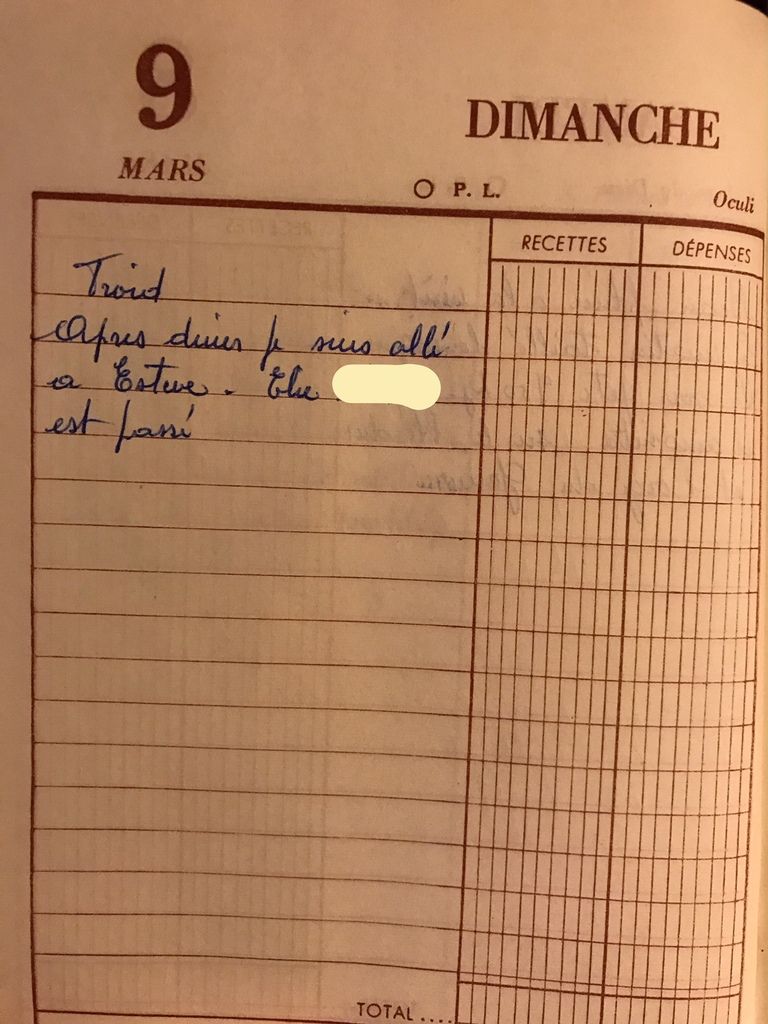 9
DIMANCHE
MARS
P. L.
Oculi
RECETTES
DÉPENSES
Froid
Apres diner je suis allé
a Esteve. Elie
est passé
TOTAL ....